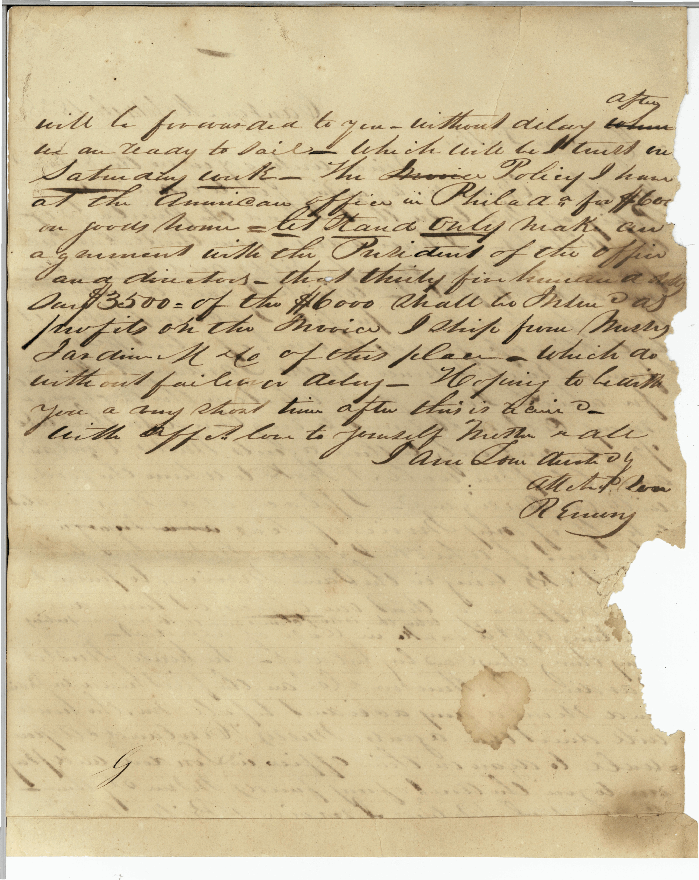 after
will be forwarded to you - without delay when
we are ready to sail - which will be I trust on
Saturday week - The Invoice Policy I have
at the American office in Philada for $600
on goods home = let it and only make an
agreement with the President of the office
and directors - that thirty five hundred
say $3500 = of the $6000 shall be as
profits on the Invoice I ship from Messrs
Jardine M &Co of this place - which do
without failure or delay - Hoping to be with
you a very short time after this is recivd -
with affect love to yourself Mother & all
I am Dear
attchd Son
R Emery